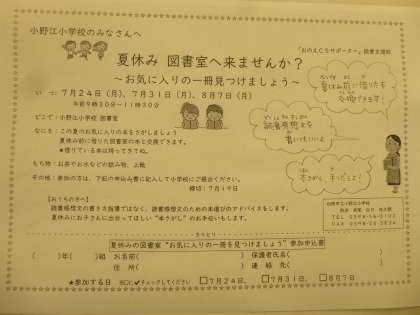 小野江小学校のみなさんへ
「おのえCSサポーター」図書支援部
夏休み 図書室へ来ませんか？
～お気に入りの一冊見つけましょう～
いつ：7月24日（月）、7月31日（月）、8月7日（月）
午前9時30分～11時30分
どこで：小野江小学校 図書室
なにを：この夏のお気に入りの本をさがしましょう
夏休み前に借りた図書室の本と交換できます。
★借りている本は持ってきてね。
もち物：お茶やお水などの飲み物、上靴
その他：参加の方は、下記の申込書に記入して小学校にご提出ください。
締切：7月19日
夏休み前に借りた本
交換できます！
読書感想文を
書いてもいいよ
本さがし 手つだうよ
【おうちの方へ】
読書感想文の書き方指導ではなく、読書感想文のための本選びのアドバイスをします。
夏休みにお子さんに出会ってほしい“本さがし”のお手伝いもします。
松阪市立小野江小学校
TEL 0598-56-2132
キリトリ
夏休みの図書室“お気に入りの一冊を見つけましょう”参加申込書
（ ）年（ ）組 お名前（ ） 保護者氏名（ ）
住 所（ ） 連 絡 先（ ）
★参加する日 □に✓チェックしてください □7月24日、 □7月31日、 □8月7日